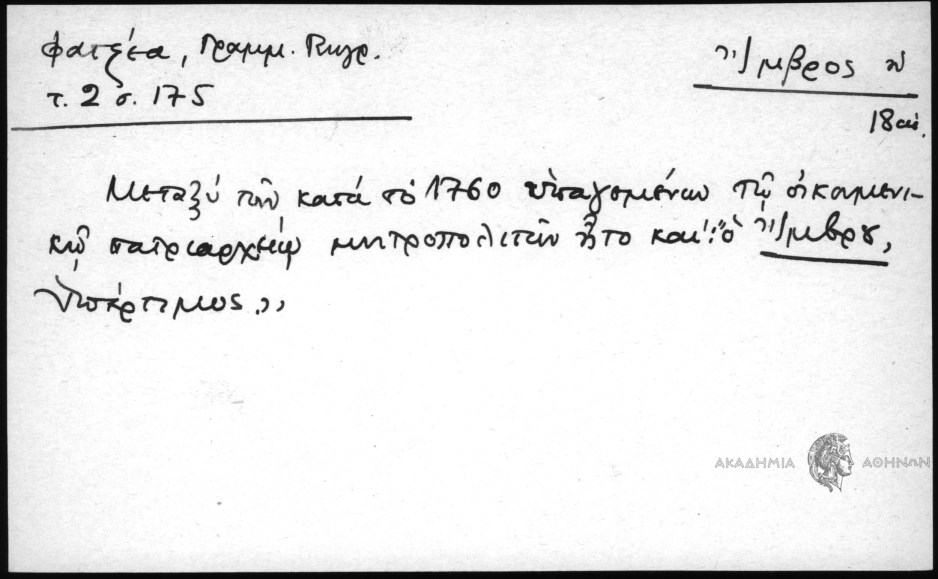 Φατζέα, Γραμμ. Κυθρ.
τ. 2 σ. 175
Ἴμβρος ἡ
18 αἰ.
Μεταξύ τῶν κατά τό 1760 ὑπαγομένων τῷ οἰκουμενι-
κῷ πατριαρχείῳ μητροπολιτῶν ἦτο καί: "ὁ Ἴμβρου,
ὑπέρτιμος,,
ΑΚΑΔΗΜΙΑ ΑΘΗΝΩΝ